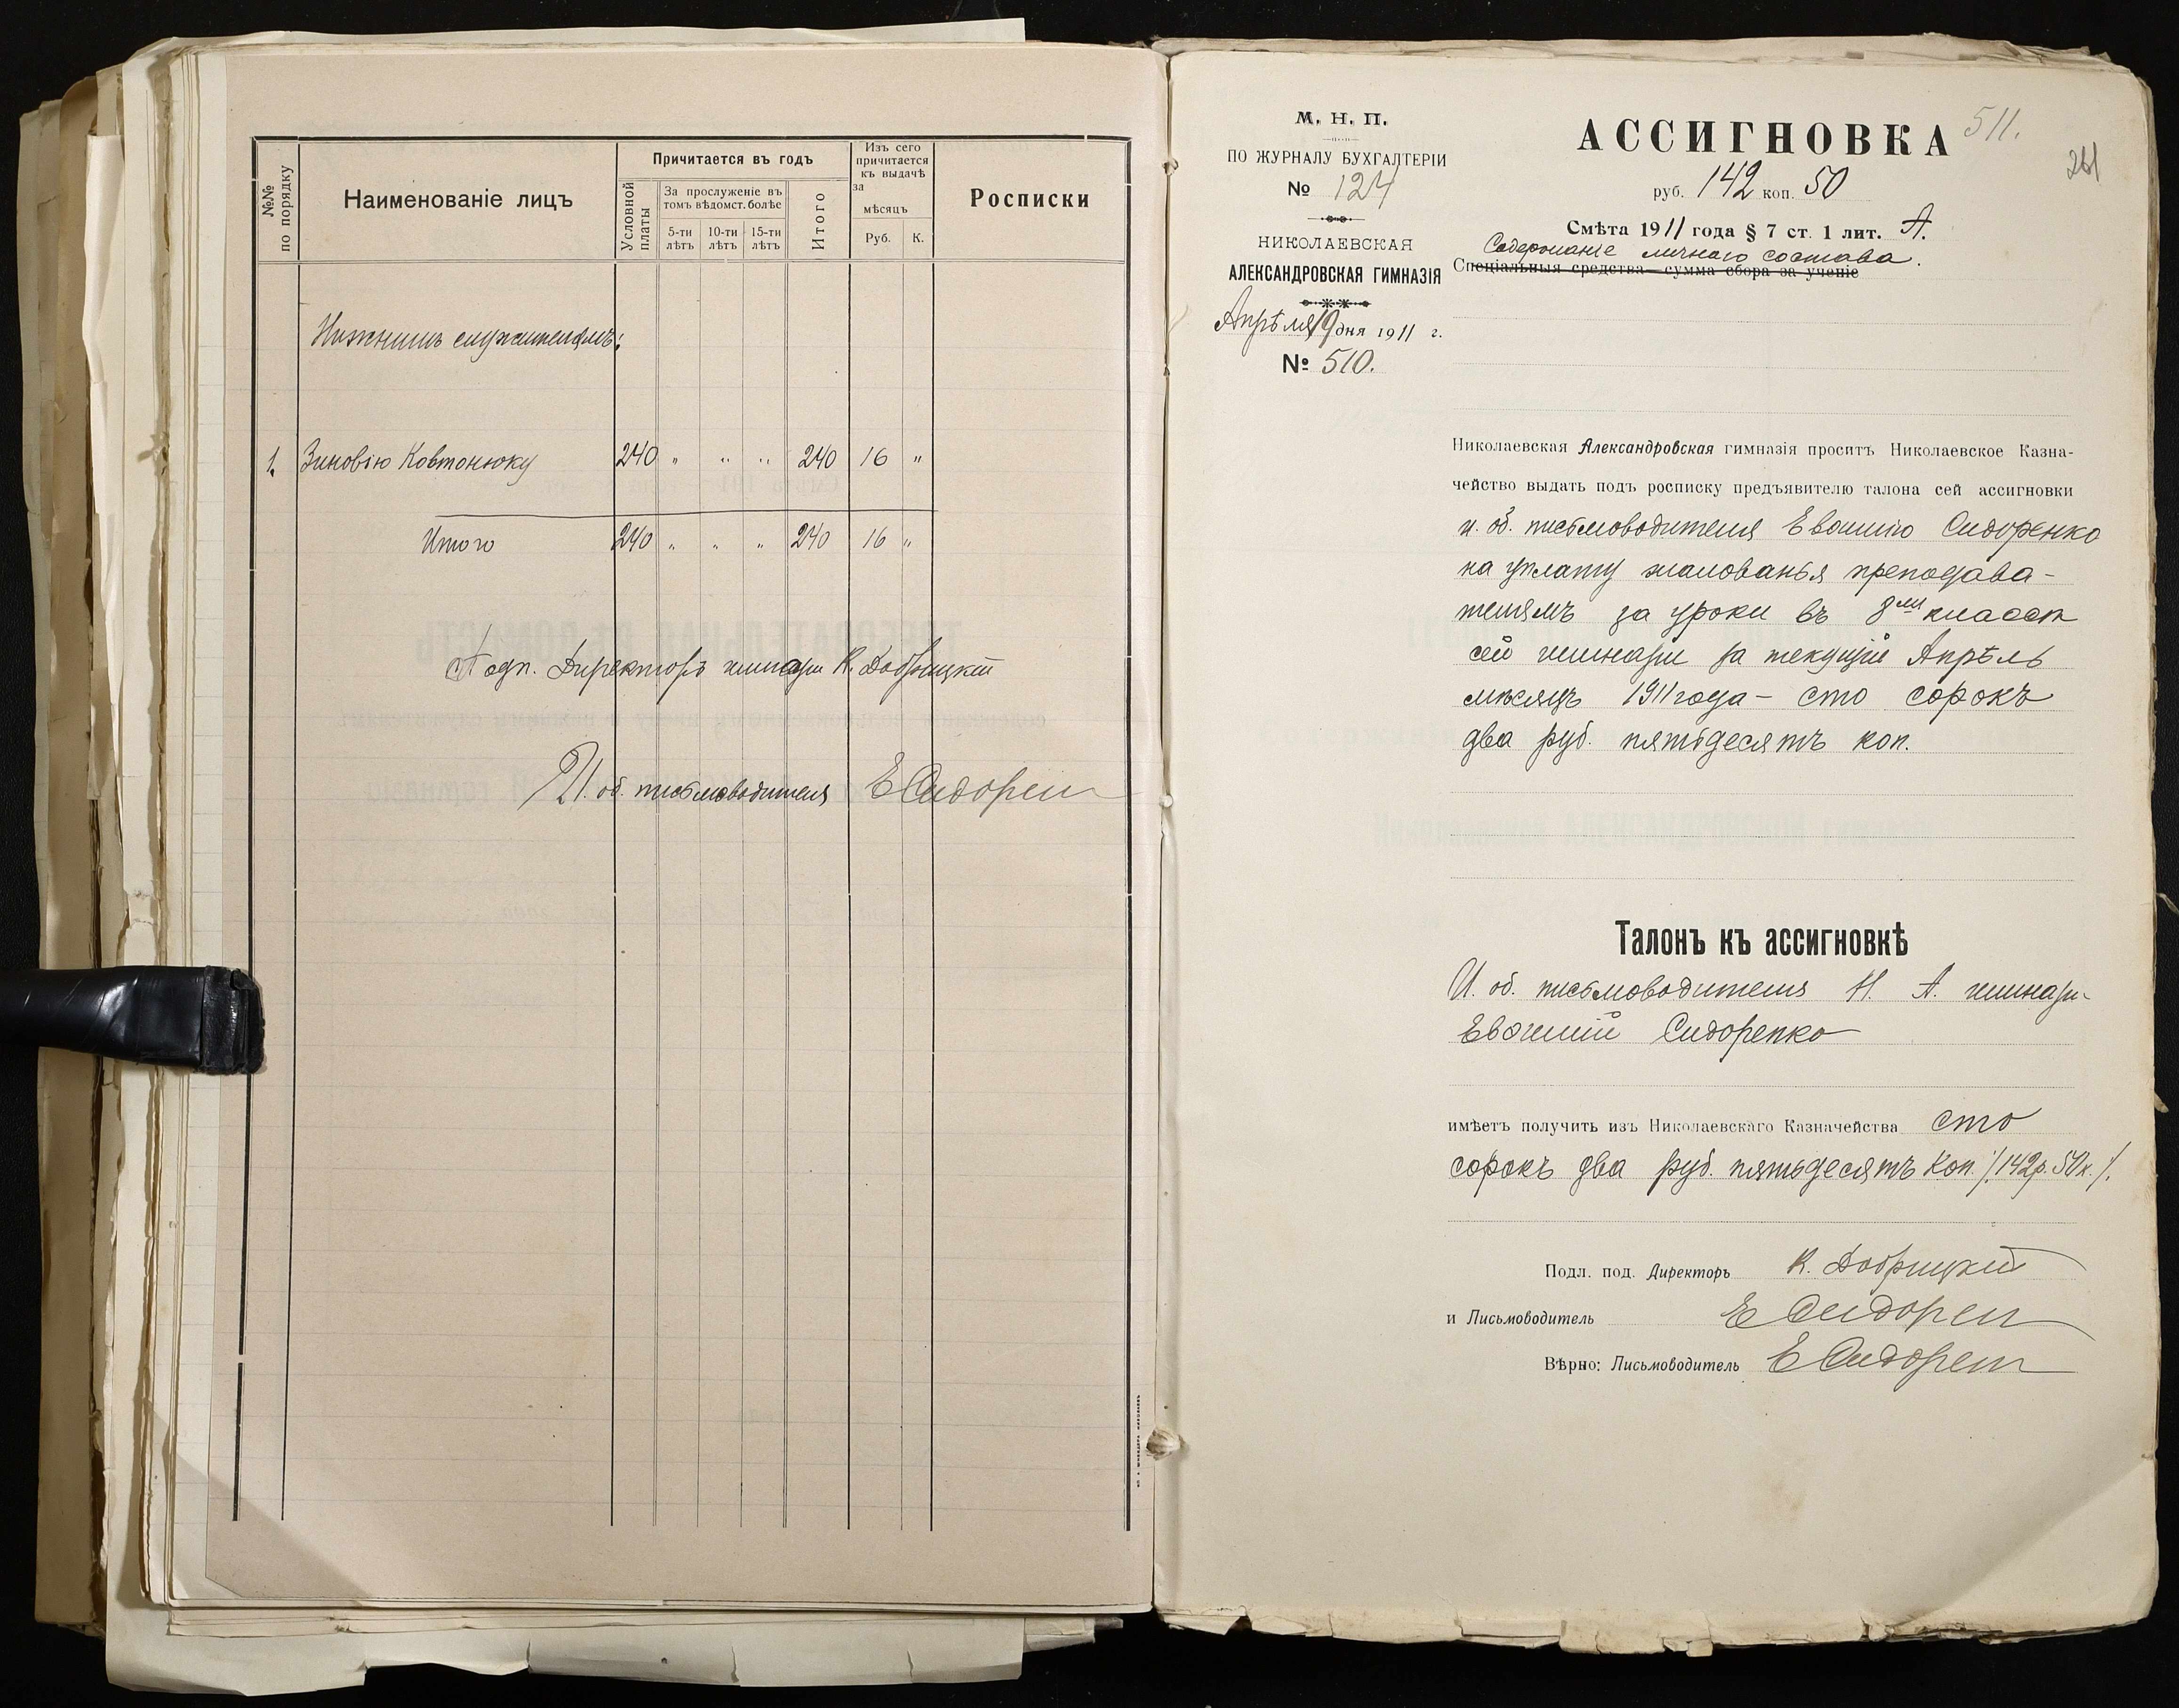 №№ по порядку
Наименованіе лицъ
Причитается въ годъ
Условной платы
За прослуженіе въ
томъ вѣдомст. болѣе
5-ти лѣтъ
10-ти лѣтъ
15-ти лѣтъ
Итого
Изъ сего
причитается
къ выдачѣ
за
мѣсяцъ
Руб. К.
Росписки
Нижнимъ служителямъ:
1. Зиновію Ковтонюку 240 " " " 240 16 "
Итого 240 " " " 240 16 "
Подп. Директоръ гимназіи К. Добрицкій
И. об. письмоводителя Е Сидорен
М. Н. П.
ПО ЖУРНАЛУ БУХГАЛТЕРІИ
№ 124
НИКОЛАЕВСКАЯ
АЛЕКСАНДРОВСКАЯ ГИМНАЗІЯ
Апрѣля 19 дня 1911 г.
№ 510.
АССИГНОВКА
511.
261
руб. 142 коп. 50
Смѣта 1911 года § 7 ст. 1 лит. А.
Содержаніе личнаго состава.
Спеціальныя средства—сумма сбора за ученіе
Николаевская Александровская гимназія проситъ Николаевское Казна-
чейство выдать подъ росписку предъявителю талона сей ассигновки
и. об. письмоводителя Евгенію Сидоренко
на уплату жалованья преподава-
телямъ за уроки въ 8ми классн
сей гимназіи за текущій Апрѣль
мѣсяцъ 1911 года – сто сорокъ
два руб. пятьдесятъ коп.
Талонъ къ ассигновкѣ
И. об. письмоводителя Н. А. гимназіи
Евгеній Сидоренко
имѣетъ получить изъ Николаевскаго Казначейства сто
сорокъ два руб. пятьдесятъ коп. /142р. 50к./.
Подл. под. Директоръ К. Добрицкій
и Письмоводитель Е Сидорен
Вѣрно: Письмоводитель Е Сидорен